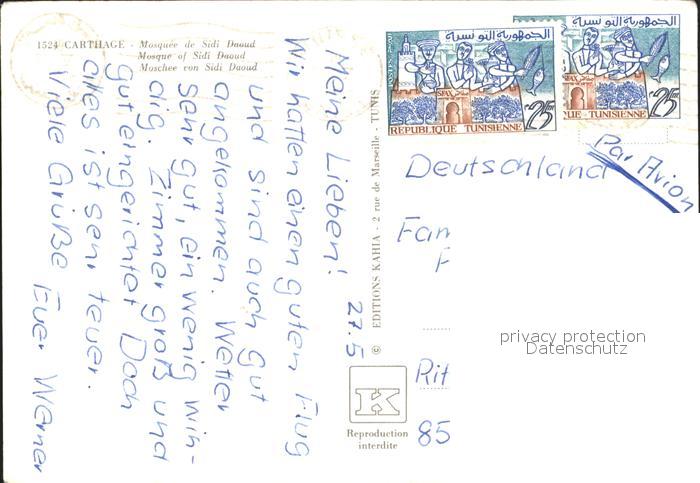 1524 CARTHAGE - Mosquée de Sidi Daoud
Mosque of Sidi Daoud
Moschee von Sidi Daoud
27.5
Meine Lieben!
Wir hatten einen guten Flug
und sind auch gut
angekommen. Wetter
sehr gut, ein wenig win-
dig. Zimmer groß und
gut eingerichtet Doch
alles ist sehr teuer.
Viele Grüße Euer Werner
© EDITIONS KAHIA - 2 rue de Marseille - TUNIS
K
Reproduction
interdite
الجمهورية التونسية
POSTES
SFAX
25
REPUBLIQUE TUNISIENNE
الجمهورية التونسية
SFAX
25
QUE TUNISIENNE
Par Avion
Deutschland
Fam
F
privacy protection
Datenschutz
Rit
85